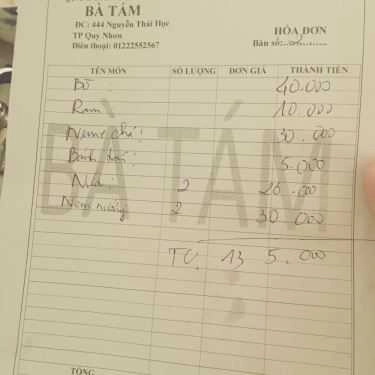 BÀ TÁM
ĐC: 444 Nguyễn Thái Học
TP Quy Nhơn
Điện thoại: 01222552567
HÓA ĐƠN
Bàn số:
TÊN MÓN SỐ LƯỢNG ĐƠN GIÁ THÀNH TIỀN
Bò 40.000
Ram 10.000
Neme chả 30.000
Bánh 5.000
2 20.000
Nem nướng 2 30.000
TC 135.000
BÀ TÁM
TỔNG